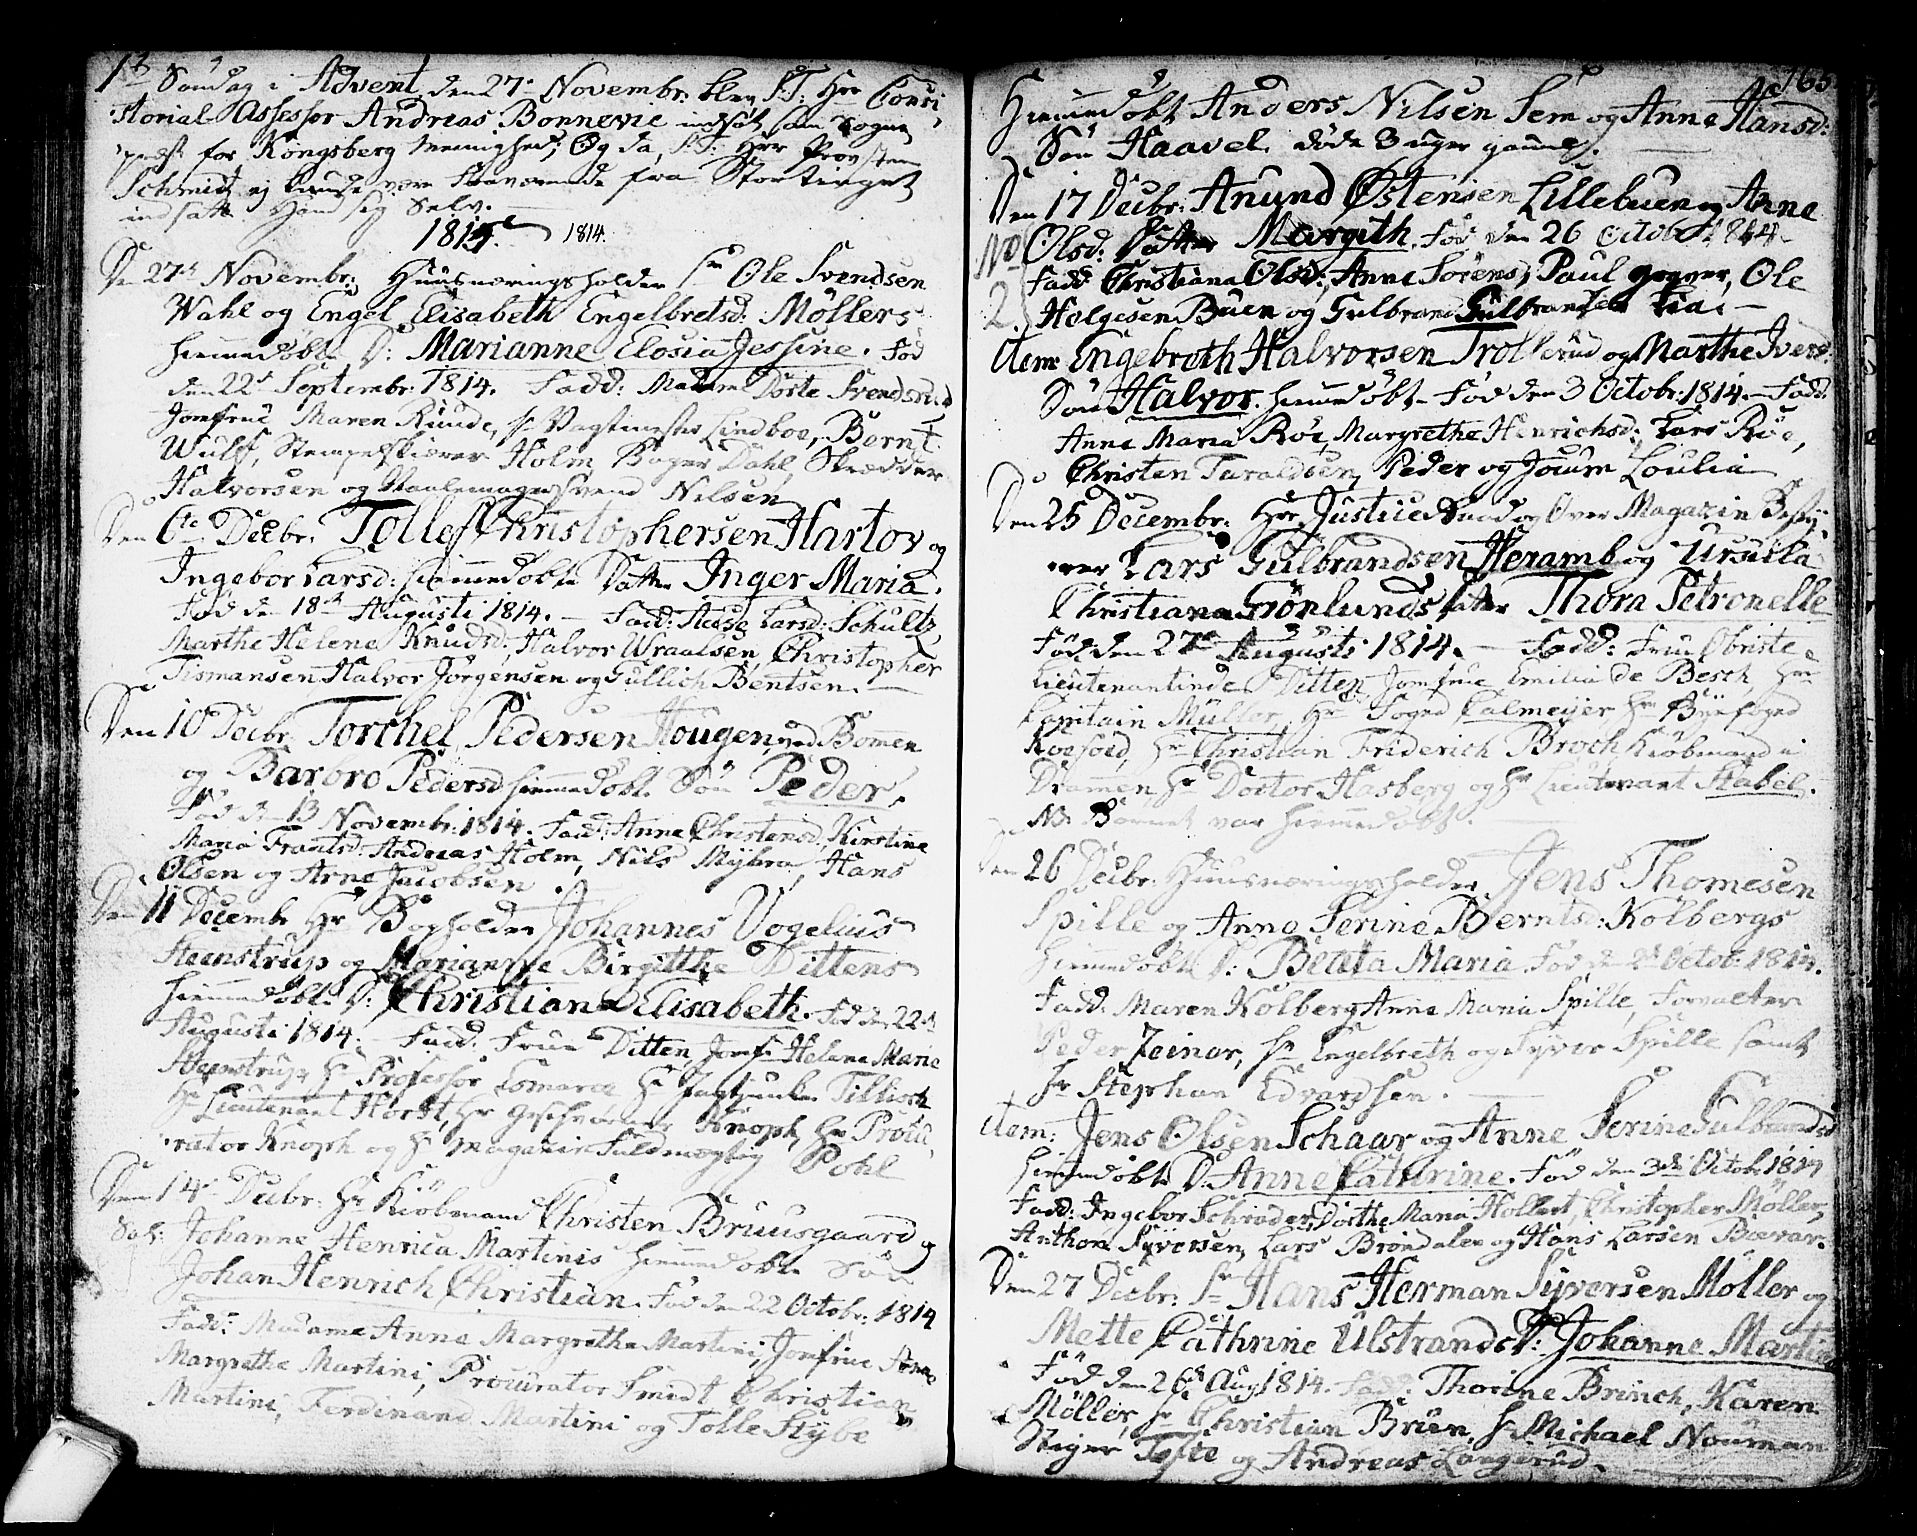 1te Søndag i Advent, den 27de Novembr. blev S.T. Herr Consi,
storial Assessor Andreas Bonnevie indsat som Sogne,
præst for Kongsberg Menighed, Og da, S.T. Herr Provsten
Schmidt ej kunde være fraværende fra Stortinget
indsatte Hand sig selv.
1814. 1814.
Den 27de Novembr. Huusnæringsholder Sr Ole Svendsen
Wahl og Engel Elisabeth Engelbretsd. Møllers
hiemmedøbte D: Marianne Elosia Jessine. Fød
den 22de Septembr. 1814. Fadd: Madam Dorte Svendsrud
Jomfrue Maren Runde, Sr Vagtmester Lindboe, Bernt
Wulff, Stempelskiærer Holm, Bager Dahl, Skrædder
Halvorsen og Maalemager Svend Nilsen
Den 6te Decbr. Tollef Christophersen Hartov og
Ingebor Larsd: hiemmedøbte Datter Inger Maria.
Fød den 18de Augusti 1814. — Fadd: Aase Larsd: Schultz,
Marthe Helene Knudsd:, Halvor Wraalsen, Christopher
Tismansen, Halvor Jørgensen og Gullich Bentsen. —
Den 10 Decbr. Torchel Pedersen Hougen ved Bommen
og Barbro Pedersd hiemmedøbt Søn Peder.
Fød den 13 Novembr. 1814. Fadd: Anne Christensd, Kirstine
Maria Frantsd: Andreas Holm, Nils Myhra, Hans
Olsen og Arne Jacobsen.
Den 11 Decembr Hr Bogholder Johannes Vogelius
Steenstrup og Marianne Birgitthe Dittens
hiemmedøbte D: Christiane Elisabeth. Fød den 22de
Augusti 1814. — Fadd: Frue Ditten, Jomfr Helene Marie
Steenstrup, Hr Professor Esmarck Hr Jagtjunker Tillisch
Hr Lieutenant Horst, Hr Geschvorner Knoph, Hr Procu,
rator Knoph og Hr Magazin Fuldmægtig Pohl
Den 14de Decbr: Hr Kiøbmand Christen Bruusgaard og
Sal: Johanne Henrica Martinis hiemmedøbte Søn
Johan Henrich Christian. Fød den 22 Octobr. 1814
Fadd: Madame Anna Margrethe Martini, Jomfrue Anne
Margrethe Martini, Procurator Smidt Christian
Martini, Ferdinand Martini og Tolle Stybe
165.
Hiemmedøbt Anders Nilsen Sem og Anne Hansd:
Søn Haavel. døde 3 uger gammel.
Den 17 Decbr: Anund Østensen Lillebuen og Anne
Olsd: Datter Margith. Fød den 26 Octobr 1814.
No 2
Fadd: Christiana Olsd:, Anne Sørensd, Paul Gregers, Ole
Helgesen Buen og Gulbrand Gulbrandsen Lia. —
Item: Engebreth Halvorsen Trollerud og Marthe Ivers.
Søn Halvor. hiemmedøbt — Fød den 3 Octobr. 1814. — Fadd:
Anne Maria Roe, Margrethe Henrichsd:, Lars Roe,
Christen Taraldsen, Peder og Joum Loulia
Den 25 Decembr: Herr Justice Raad og Over Magazin Besty,
rer Lars Gulbrandsen Heramb og Ursilla
Christiana Grönlunds Datter Thora Petronelle
Fød den 27de Augusti 1814. — Fadd: Frue Obriste
Lieutenantinde Ditten, Jomfrue Emilia de Besch Hr
Capitain Müller, Hr Foged Calmeyer Hr Byefoged
Roefoed, Hr Christian Friderich Broch Kiøbmand i
Drammen Hr Doctor Hasberg og Hr Lieutenant Stabel.
NB. Barnet var hiemmedøbt.
Den 26 Decbr: Huusnæringsholder Jens Thomesen
Spille og Anne Serine Berntsd: Kolbergs
hiemmedøbte D: Beata Maria. Fød den 2de Octobr. 1814.
Fadd: Maren Kolberg, Anne Maria Spille, Forvalter
Peder Zeiner, Sr Engelbreth og Syver Spille samt
Sr Stephan Edvardsen. —
Item: Jens Olsen Schaar og Anne Serine Gulbrandsd
hiemmedøbte D: Anne Cathrine. Fød den 3de Octobr. 1814
Fadd: Ingebor Schrøder, Dorthe Maria Hollert, Christopher Møller,
Anthon Syversen, Lars Brøndalen og Hans Larsen Bierar.
Den 27 Decbr: Sr Hans Herman Syversen Møller og
Mette Cathrine Ulstrands D: Johanne Martia
Fød den 26de Aug 1814. Fadd: Thorine Brinch, Karen
Møller, Sr Christian Brun, Sr Michael Nouman
Stiger Tofte og Andreas Langerud. —